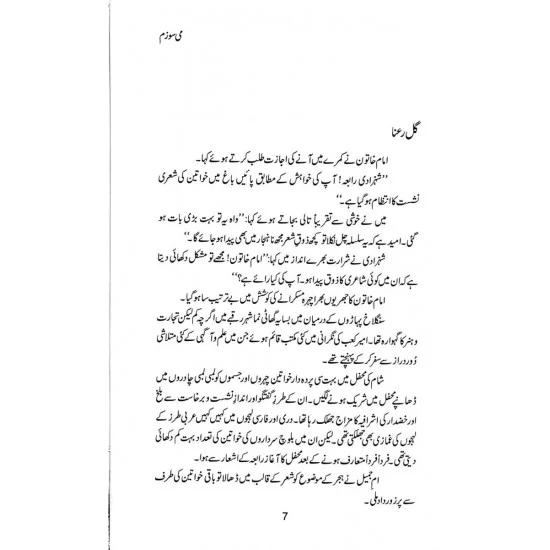 می سوزم
گل رعنا
امام خاتون نے کمرے میں آنے کی اجازت طلب کرتے ہوئے کہا۔
"شہزادی رابعہ! آپ کی خواہش کے مطابق پائیں باغ میں خواتین کی شعری
نشست کا انتظام ہو گیا ہے۔"
میں نے خوشی سے تقریباً تالی بجاتے ہوئے کہا: "واہ یہ تو بہت بڑی بات ہو
گئی۔ امید ہے کہ یہ سلسلہ چل نکلا تو کچھ ذوقِ شعر مجھ ناہنجار میں بھی پیدا ہو جائے گا۔"
شہزادی نے شرارت بھرے انداز میں کہا: "امام خاتون! مجھے تو مشکل دکھائی دیتا
ہے کہ ان میں کوئی شاعری کا ذوق پیدا ہو۔ آپ کی کیا رائے ہے؟"
امام خاتون کا جھریوں بھرا چہرہ مسکرانے کی کوشش میں بے ترتیب سا ہو گیا۔
سنگلاخ پہاڑوں کے درمیان میں بسا یہ گھاٹی نما شہر رقبے میں اگرچہ کم لیکن تجارت
و ہنر کا گہوارہ تھا۔ امیر کعب کی نگرانی میں کئی مکتب قائم ہوئے جن میں علم و آگہی کے کئی متلاشی
دور دراز سے سفر کر کے پہنچتے تھے۔
شام کی محفل میں بہت سی پردہ دار خواتین چہروں اور جسموں کو لمبی لمبی چادروں میں
ڈھانپے محفل میں شریک ہونے لگیں۔ ان کے طرزِ گفتگو اور اندازِ نشست و برخاست سے بلخ
اور خضدار کی اشرافیہ کا مزاج جھلک رہا تھا۔ دری اور فارسی لہجوں میں کہیں کہیں عربی طرز کے
لہجوں کی غمازی بھی جھلکتی تھی۔ لیکن ان میں بلوچ سرداروں کی خواتین کی تعداد بہت کم دکھائی
دیتی تھی۔ فرداً فرداً متعارف ہونے کے بعد محفل کا آغاز رابعہ کے اشعار سے ہوا۔
ام جمیل نے ہجر کے موضوع کو شعر کے قالب میں ڈھالا تو باقی خواتین کی طرف
سے پر زور داد ملی۔
7